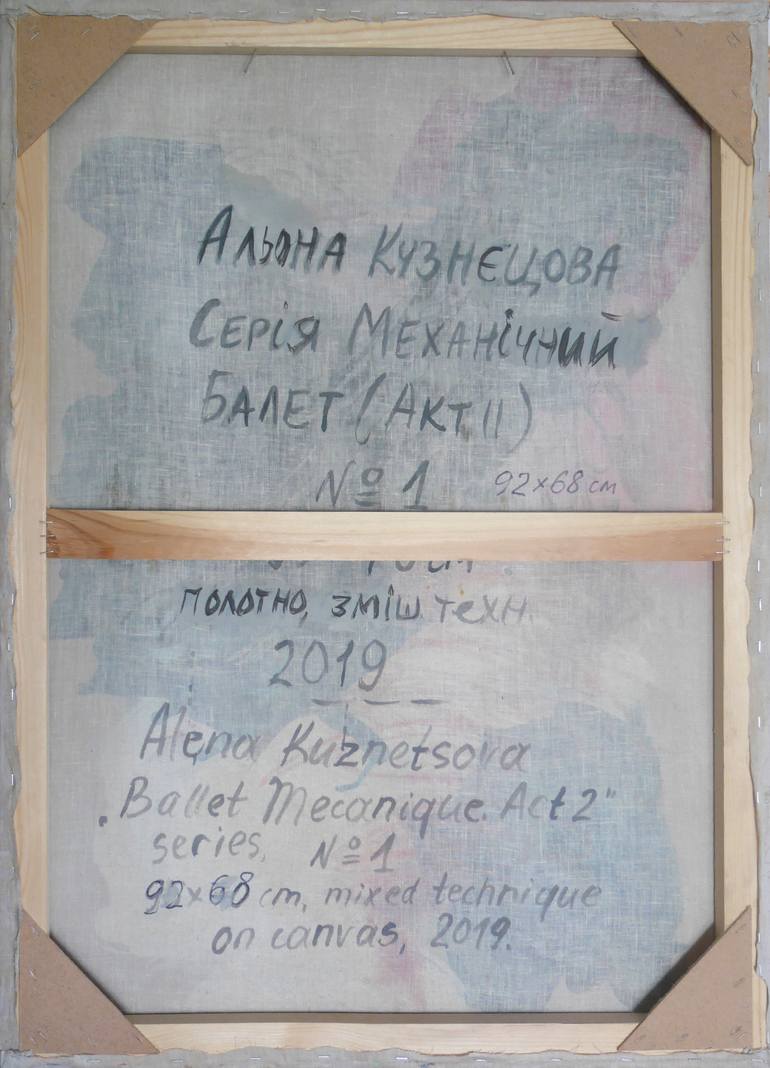 Альона Кузнєцова
Серія Механічний
Балет (Акт II)
№ 1 92×68 см
полотно, зміш техн.
2019
Alena Kuznetsova
„Ballet Mecanique. Act 2"
series, № 1
92×68 cm, mixed technique
on canvas, 2019.